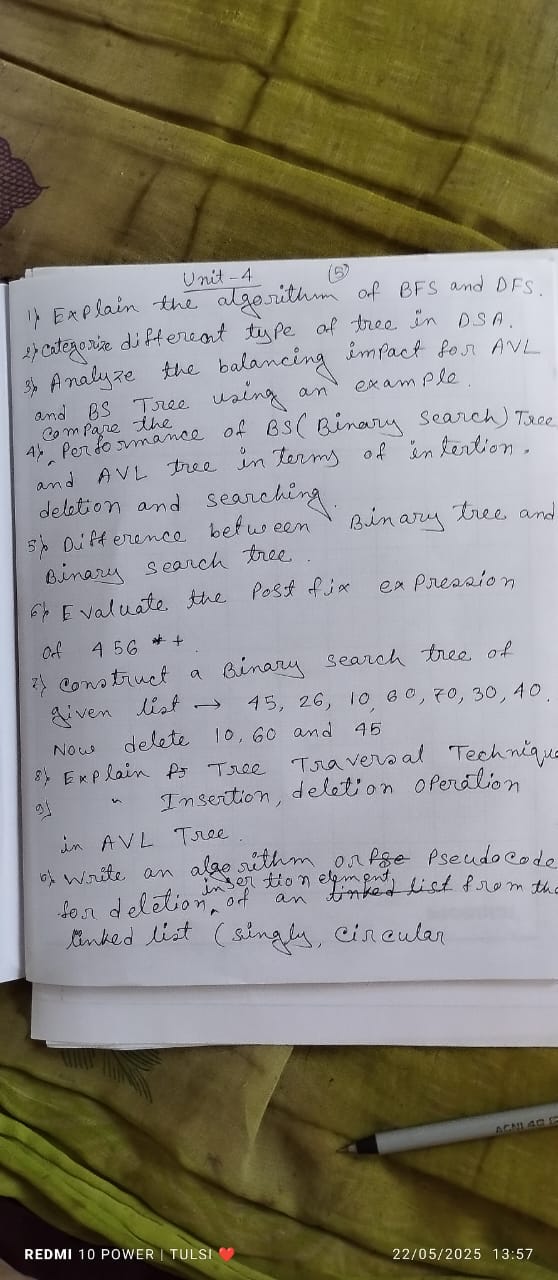 Unit - 4 (5)
1) Explain the algorithm of BFS and DFS.
2) Categorize different type of tree in DSA.
3) Analyze the balancing impact for AVL
and BS Tree using an example.
Compare the
4) Performance of BS(Binary Search) Tree
and AVL tree in terms of intertion.
deletion and searching.
5) Difference between Binary tree and
Binary search tree.
6) Evaluate the Postfix expression
of 4 5 6 * +
7) Construct a Binary search tree of
given list → 45, 26, 10, 60, 70, 30, 40.
Now delete 10, 60 and 45
8) Explain Tree Traversal Technique
9) " Insertion, deletion operation
in AVL Tree.
Write an algorithm or Pseudocode
insertion element
for deletion, of an linked list from the
linked list (singly, circular
ACNI
REDMI 10 POWER | TULSI ❤️ 22/05/2025 13:57